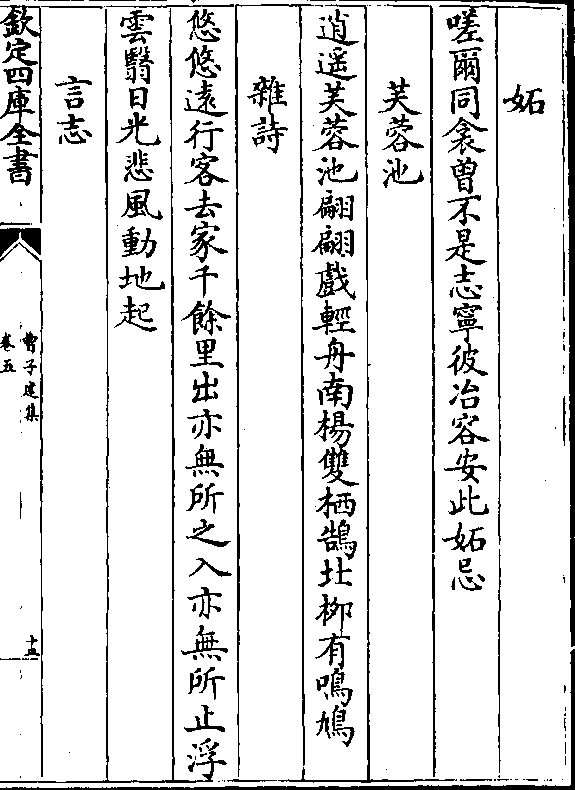 妬
嗟爾同衾曽不是志寧彼冶容安此妬忌
芙蓉池
逍遥芙蓉池翩翩戯輕舟南楊雙栖鵠北栁有鳴鳩
雜詩
悠悠遠行客去家千餘里出亦無所之入亦無所止浮
雲翳日光悲風動地起
言志
欽定四庫全書
曹子建集
卷五
十五